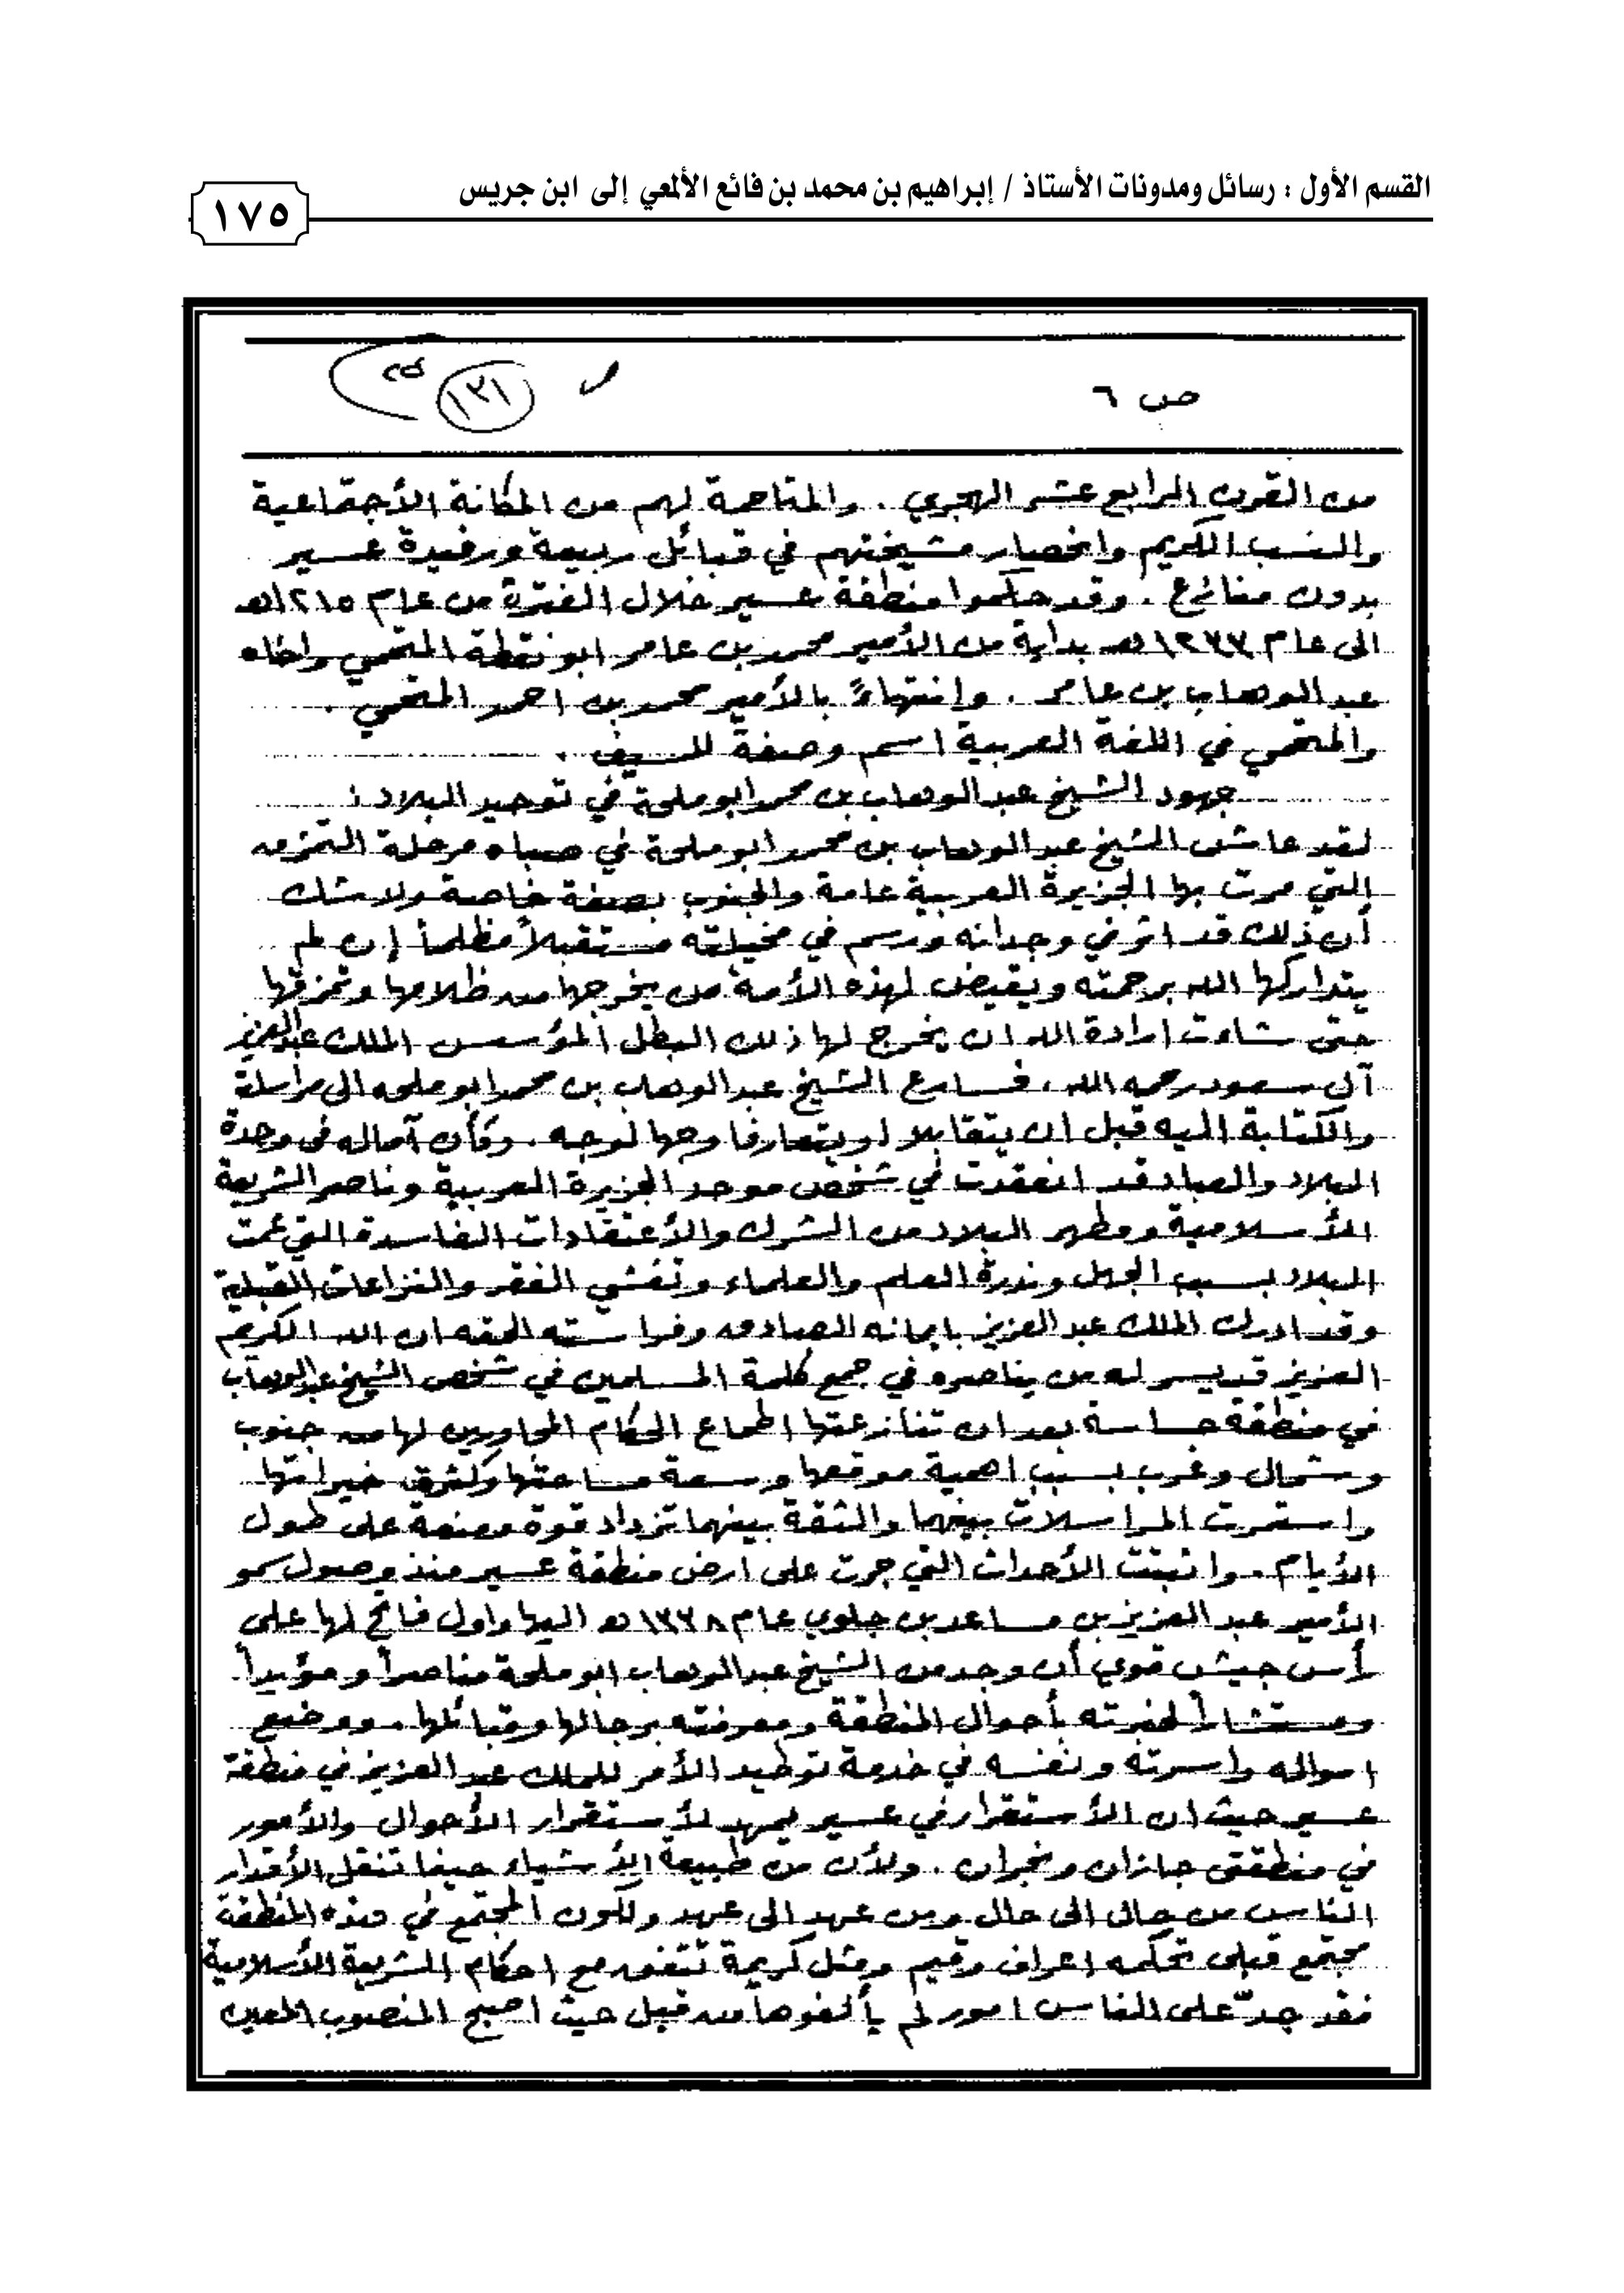 القسم الأول : رسائل ومدونات الأستاذ / إبراهيم بن محمد بن فائع الألمعي إلى ابن جريس
١٧٥
ص ٦
١٣١
من القرن الرابع عشر الهجري . والمتاحمة لهم من المكانة الأجتماعية
والنسب الكريم وانحصار مشيختهم في قبائل ربيعة ورفيدة عسير
بدون منازع . وقد حكموا منطقة عسير خلال الفترة من عام ١٢١٥هـ
الى عام ١٢٣٣هـ بداية من الأمير محمد بن عامر ابو نقطة المتحمي واخاه
عبد الوهاب بن عامر . وإنتهاءً بالأمير محمد بن احمد المتحمي .
والمتحمي في اللغة العربية اسم وصفة للسيف .
جهود الشيخ عبد الوهاب بن محمد ابو ملحة في توحيد البلاد :
لقد عاش الشيخ عبد الوهاب بن محمد ابو ملحة في صباه مرحلة التمزق
التي مرت بها الجزيرة العربية عامة والجنوب بصفة خاصة ولاشك
أن ذلك قد اثر في وجدانه ورسم في مخيلته مستقبلاً مظلماً إن لم
يتداركها الله برحمته ويقيض لهذه الأمة من يخرجها من ظلامها وتمزقها
حتى شاءت ارادة الله ان يخرج لها ذلك البطل المؤسس الملك عبد العزيز
آل سعود رحمه الله ، فسارع الشيخ عبد الوهاب بن محمد ابو ملحه الى مراسلة
والكتابة اليه قبل ان يتقابلا او يتعارفا وجها لوجه . وكأن آماله فى وحدة
البلاد والعباد قد انعقدت في شخص موحد الجزيرة العربية وناصر الشريعة
الأسلامية ومطهر البلاد من الشرك والأعتقادات الفاسدة التي عمت
البلاد بسبب الجهل وندرة العلم والعلماء وتفشي الفقر والنزاعات القبلية
وقد ادرك الملك عبد العزيز بايمانه الصادق وفراسته الحقه ان الله الكريم
العزيز قد يسر له من يناصره في جمع كلمة المسلمين في شخص الشيخ عبد الوهاب
في منطقة حساسة بعد ان تنازعتها اطماع الحكام المجاورين لها من جنوب
وشمال وغرب بسبب اهمية موقعها وسعة مساحتها وكثرة خيراتها
واستمرت المراسلات بينهما والثقة بينهما تزداد قوة ومنعة على طول
الأيام . واثبتت الأحداث التي جرت على ارض منطقة عسير منذ وصول سمو
الأمير عبد العزيز بن مساعد بن جلوي عام ١٣٣٨ هـ اليها واول فاتح لها على
رأس جيش قوي أن وجد من الشيخ عبد الوهاب ابو ملحة مناصراً ومؤيداً
ومستشاراً لخبرته بأحوال المنطقة ومعرفته برجالها وقبائلها . ووضع
امواله واسرته ونفسه في خدمة توطيد الأمر للملك عبد العزيز في منطقة
عسير حيث ان الأستقرار في عسير يمهد لأستقرار الأحوال والأمور
في منطقتى جازان ونجران . ولأن من طبيعة الأشياء حينما تنقل الأقدار
الناس من حال الى حال ومن عهد الى عهد ولكون المجتمع في هذه المنطقة
مجتمع قبلى تحكمه اعراف وقيم ومثل كريمة تتفق مع احكام الشريعة الأسلامية
فقد جدّ على الناس امور لم يألفوها من قبل حيث اصبح المنصوب المعين